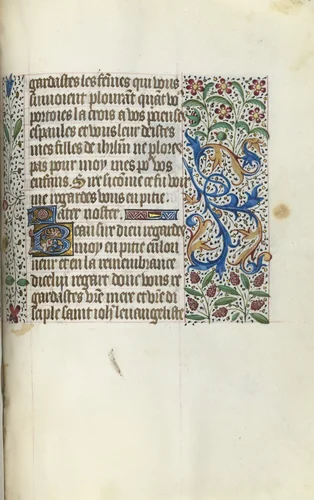 gardastes les femes qui vous
suivoient plourāt quāt vo9
portoies la crois a vos precieuses
espaules et vous leur deistes
mes filles de ihrlm ne plores
pas pour moy mes po vos
enfans. Sire sicōme ce fu voir
me regardes vous en pitie.
Pater noster.
Beau sire dieu regardes
moy en pitie en lon
neur et en la remembrance
dicelui regart donc vous re
gardastes vr̄e mere et vr̄e di
saple saint ioh̄ leuangeliste